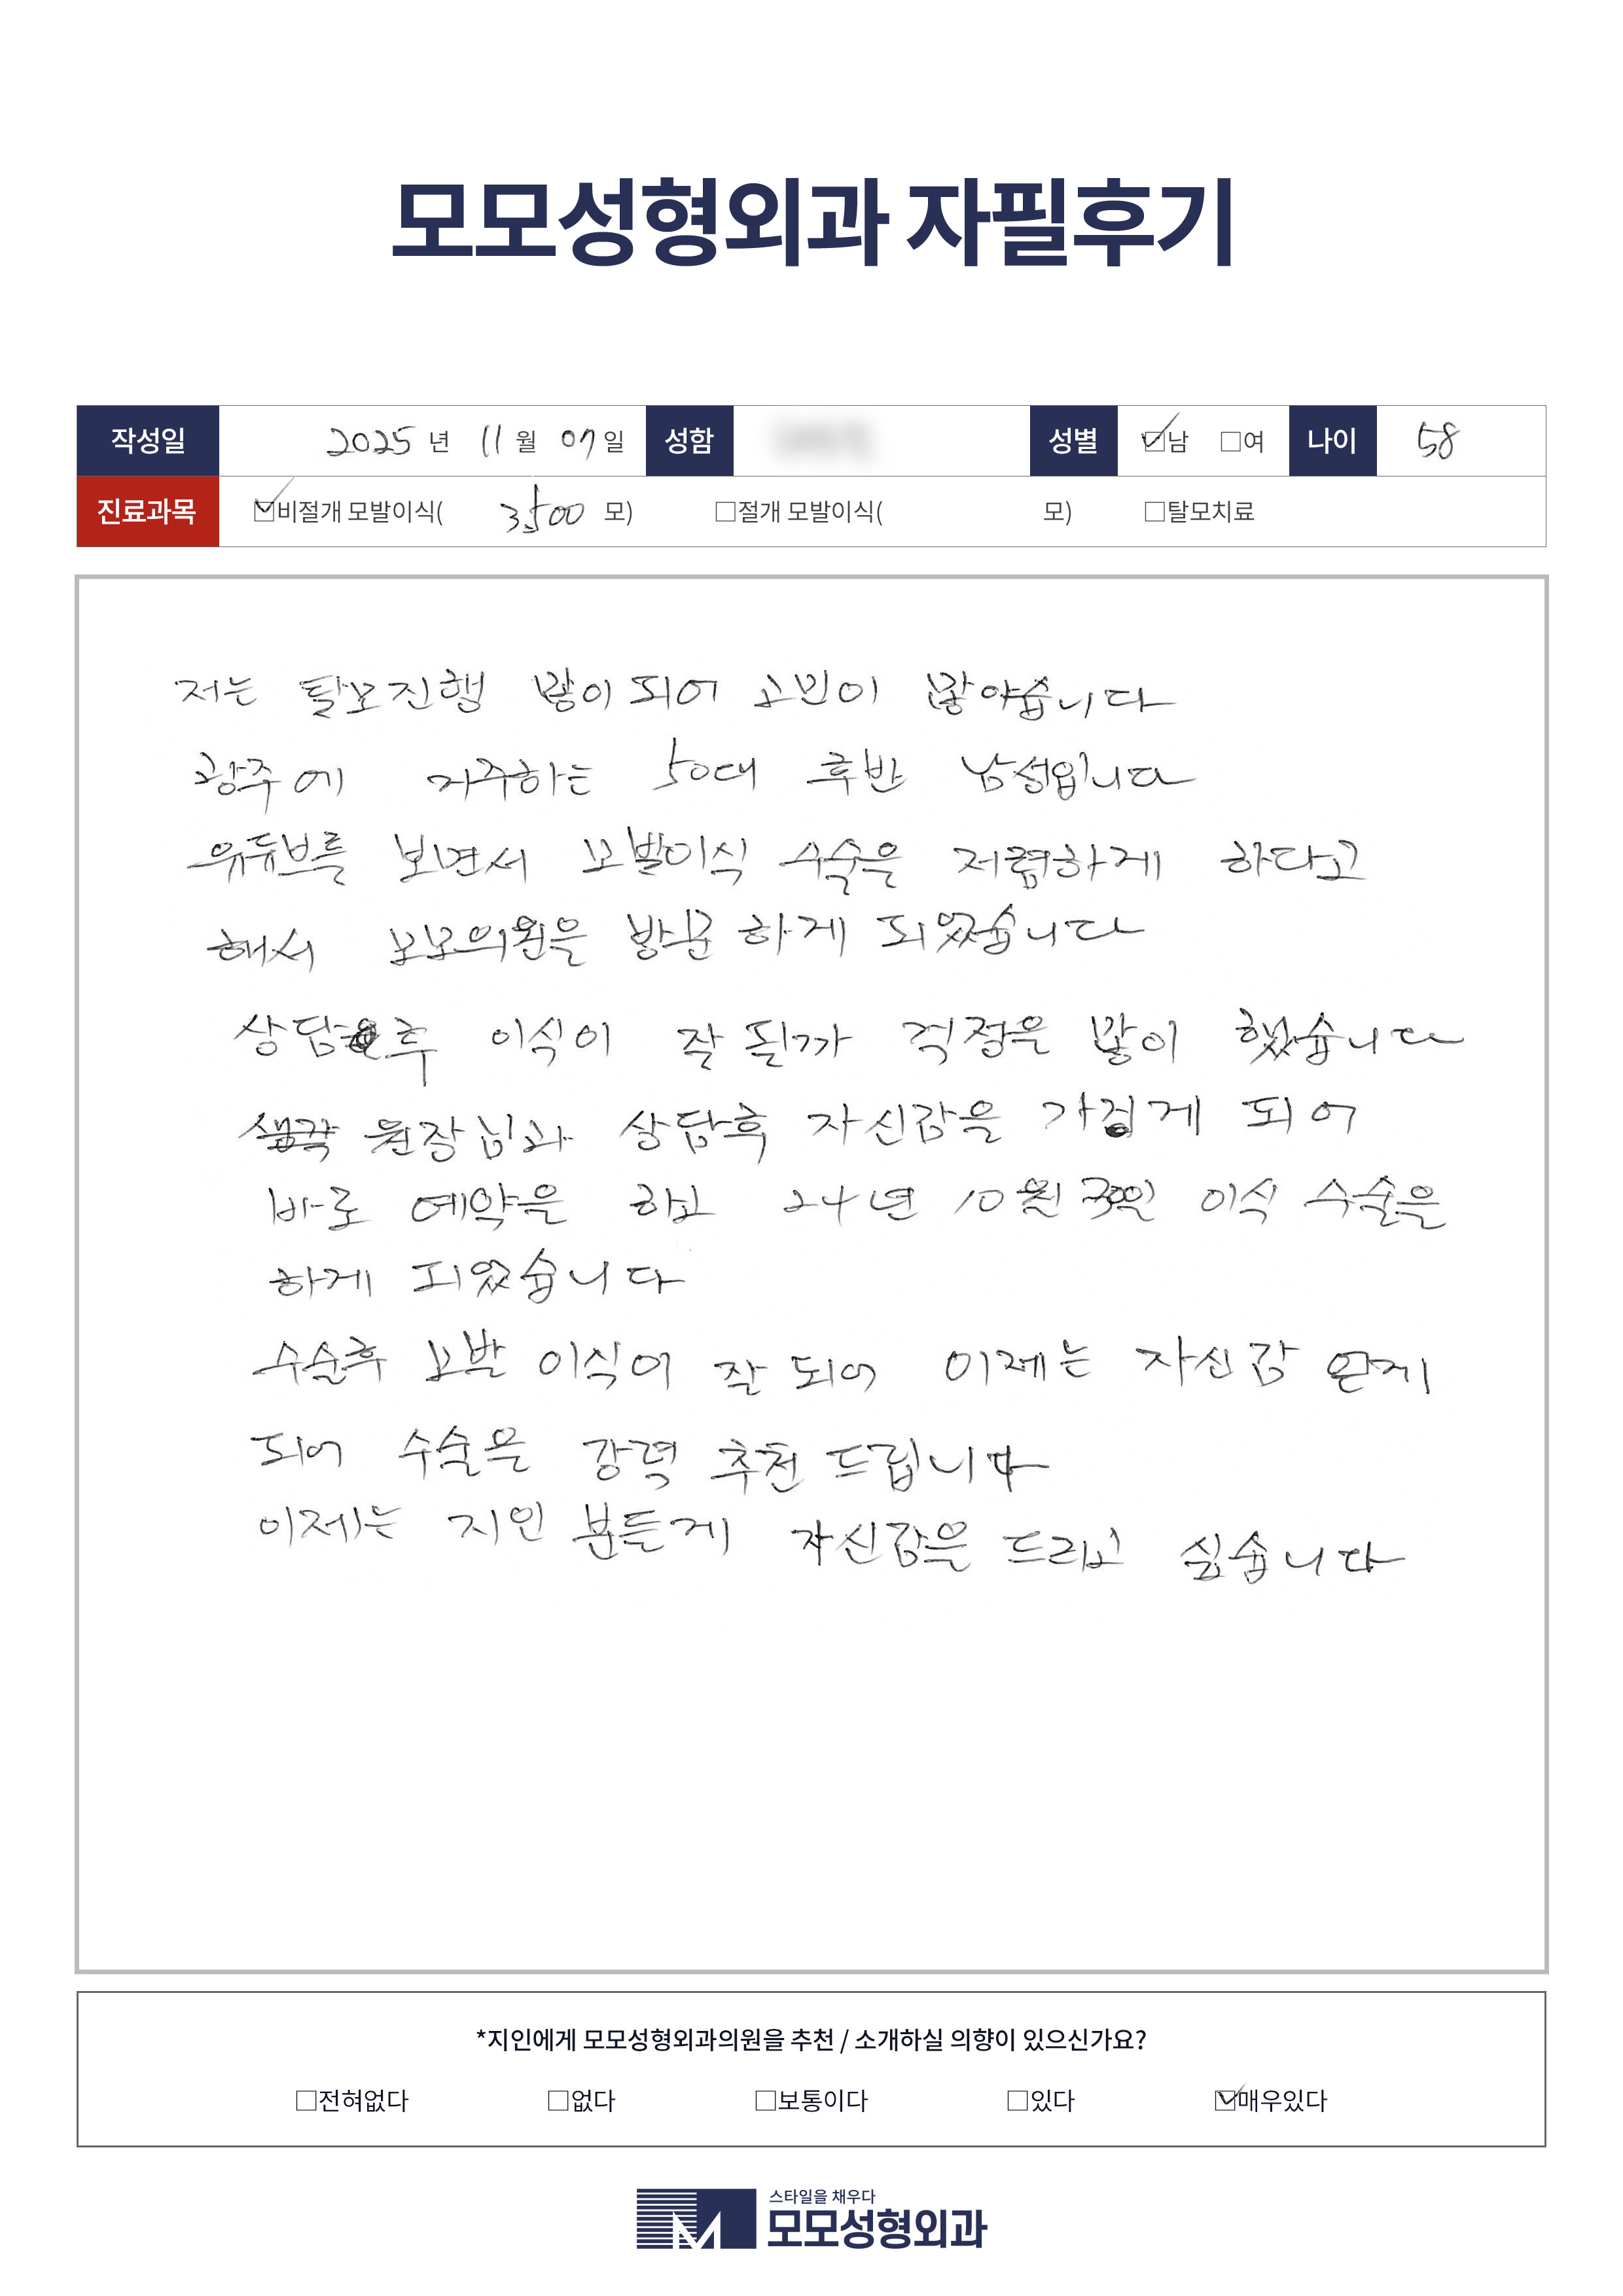 모모성형외과 자필후기
작성일 2025 년 11 월 07 일 성함 성별 ☑남 □여 나이 58
진료과목 ☑비절개 모발이식( 3,500 모) □절개 모발이식( 모) □탈모치료
저는 탈모진행 많이 되어 고민이 많아습니다
광주에 거주하는 50대 후반 남성입니다
유듀브를 보면서 모발이식 수술을 저렴하게 하다고
해서 모모의원을 방문하게 되었습니다
상담 후 이식이 잘 될까 걱정을 많이 했습니다
원장님과 상담후 자신감을 가지게 되어
바로 예약을 하고 24년 10월 이식 수술을
하게 되었습니다
수술후 모발 이식이 잘 되어 이제는 자신감
되어 수술을 강력 추천 드립니다
이제는 지인 분들게 자신감을 드리고 싶습니다
*지인에게 모모성형외과의원을 추천 / 소개하실 의향이 있으신가요?
□전혀없다 □없다 □보통이다 □있다 ☑매우있다
스타일을 채우다
모모성형외과